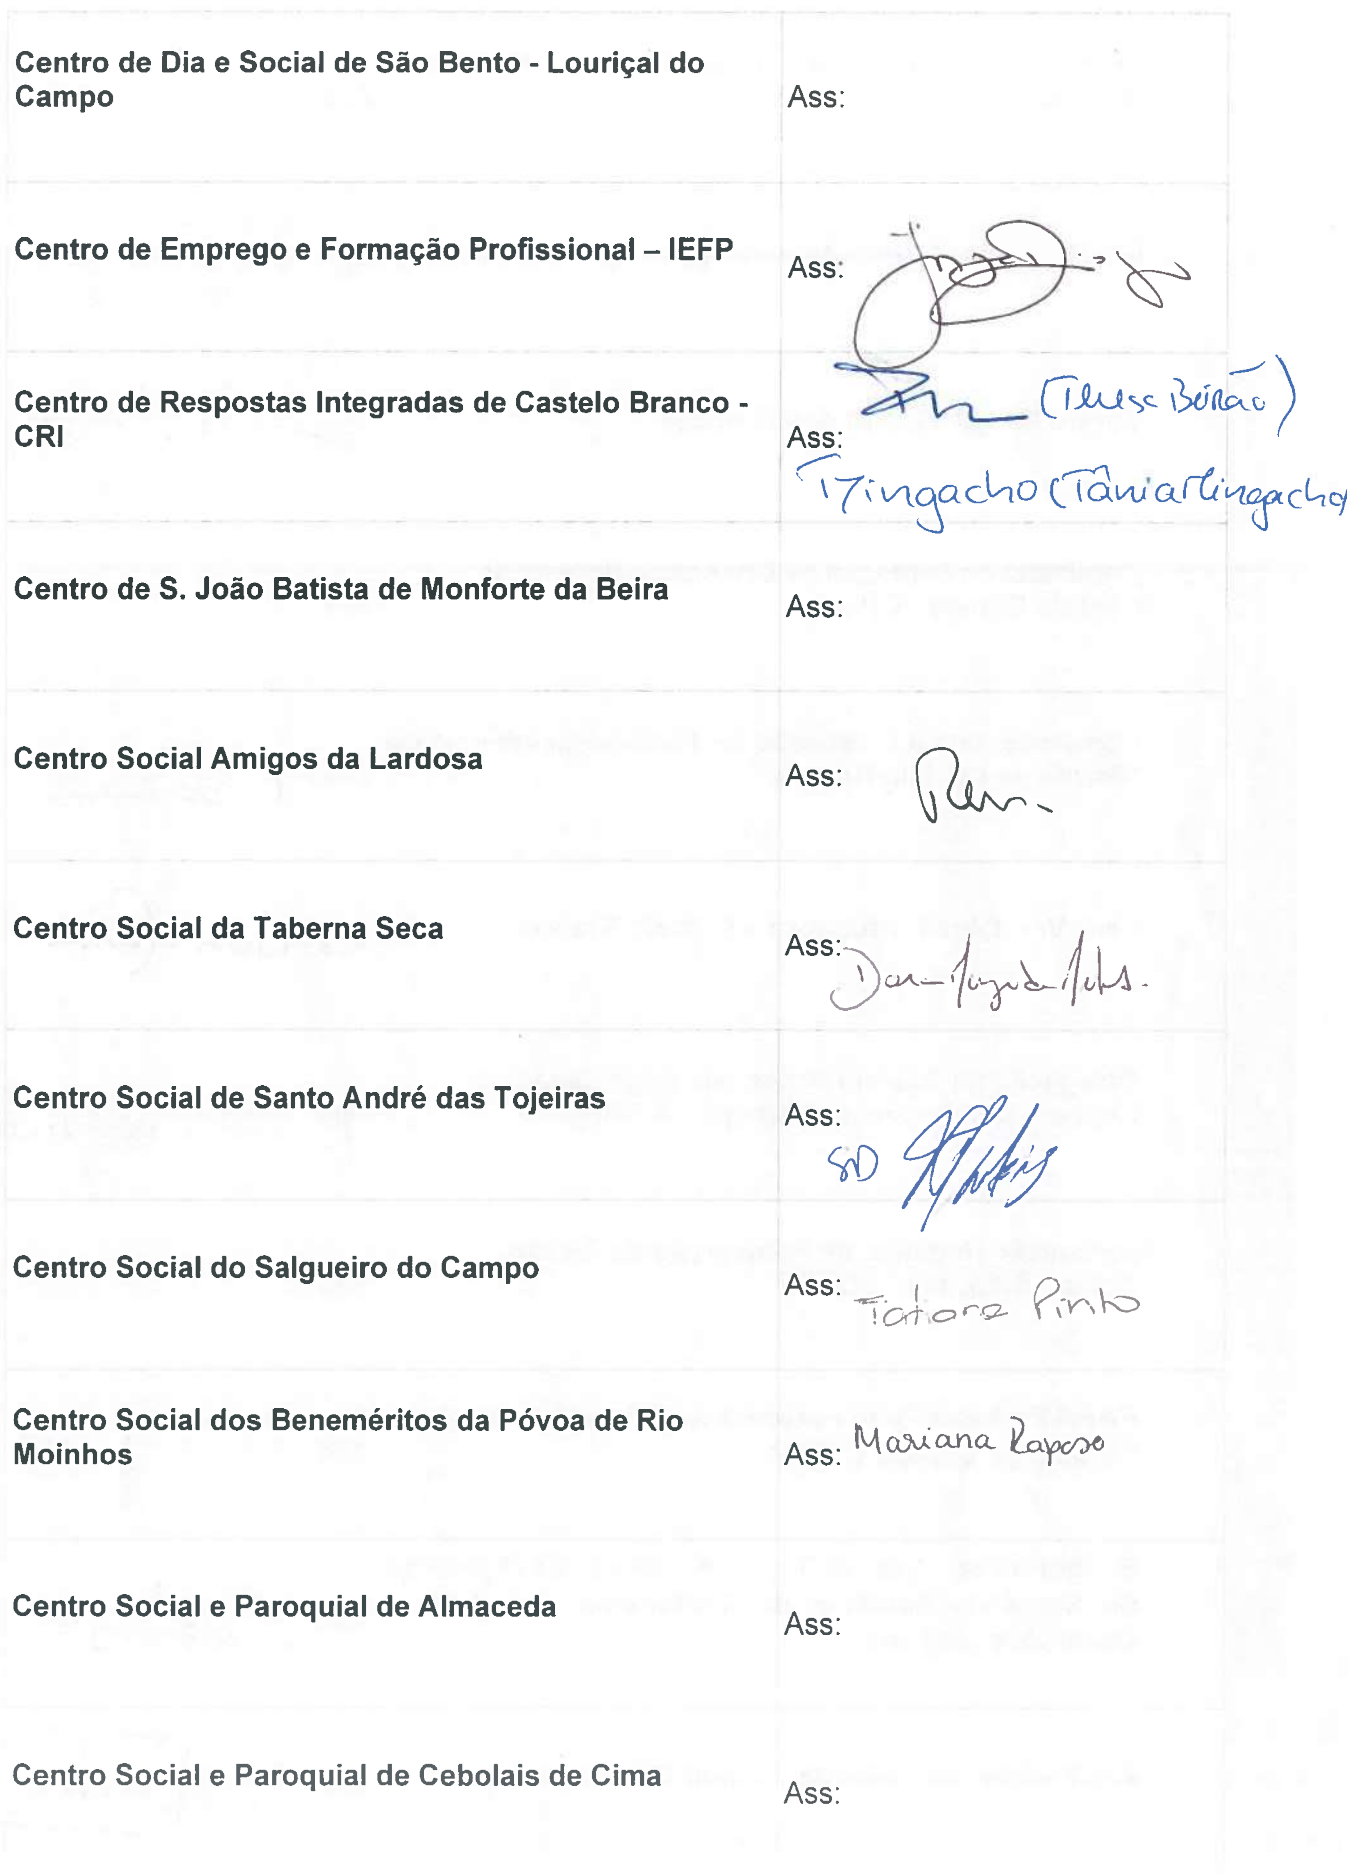 Centro de Dia e Social de São Bento - Louriçal do
Campo
Ass:
Centro de Emprego e Formação Profissional – IEFP
Ass:
Centro de Respostas Integradas de Castelo Branco -
CRI
Ass:
(Teresa Beirão)
TMingacho (Tânia Mingacho
Centro de S. João Batista de Monforte da Beira
Ass:
Centro Social Amigos da Lardosa
Ass:
Centro Social da Taberna Seca
Ass:
Centro Social de Santo André das Tojeiras
Ass:
Centro Social do Salgueiro do Campo
Ass: Tatiana Pinto
Centro Social dos Beneméritos da Póvoa de Rio
Moinhos
Ass: Mariana Raposo
Centro Social e Paroquial de Almaceda
Ass:
Centro Social e Paroquial de Cebolais de Cima
Ass: